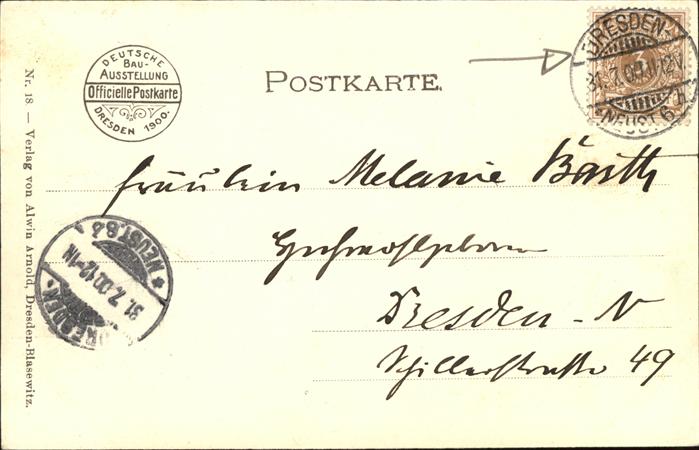 DEUTSCHE
BAU-
AUSSTELLUNG
Officielle Postkarte
DRESDEN 1900.
POSTKARTE.
DRESDEN-
31.7.00.11-12V.
NEUST. 6 h
Fräulein Melanie Barth
Hochwohlgeboren
Dresden-N
Schillerstraße 49
DRESDEN-
31.7.00.12-1N.
NEUST. 8
Nr. 18 — Verlag von Alwin Arnold, Dresden-Blasewitz.